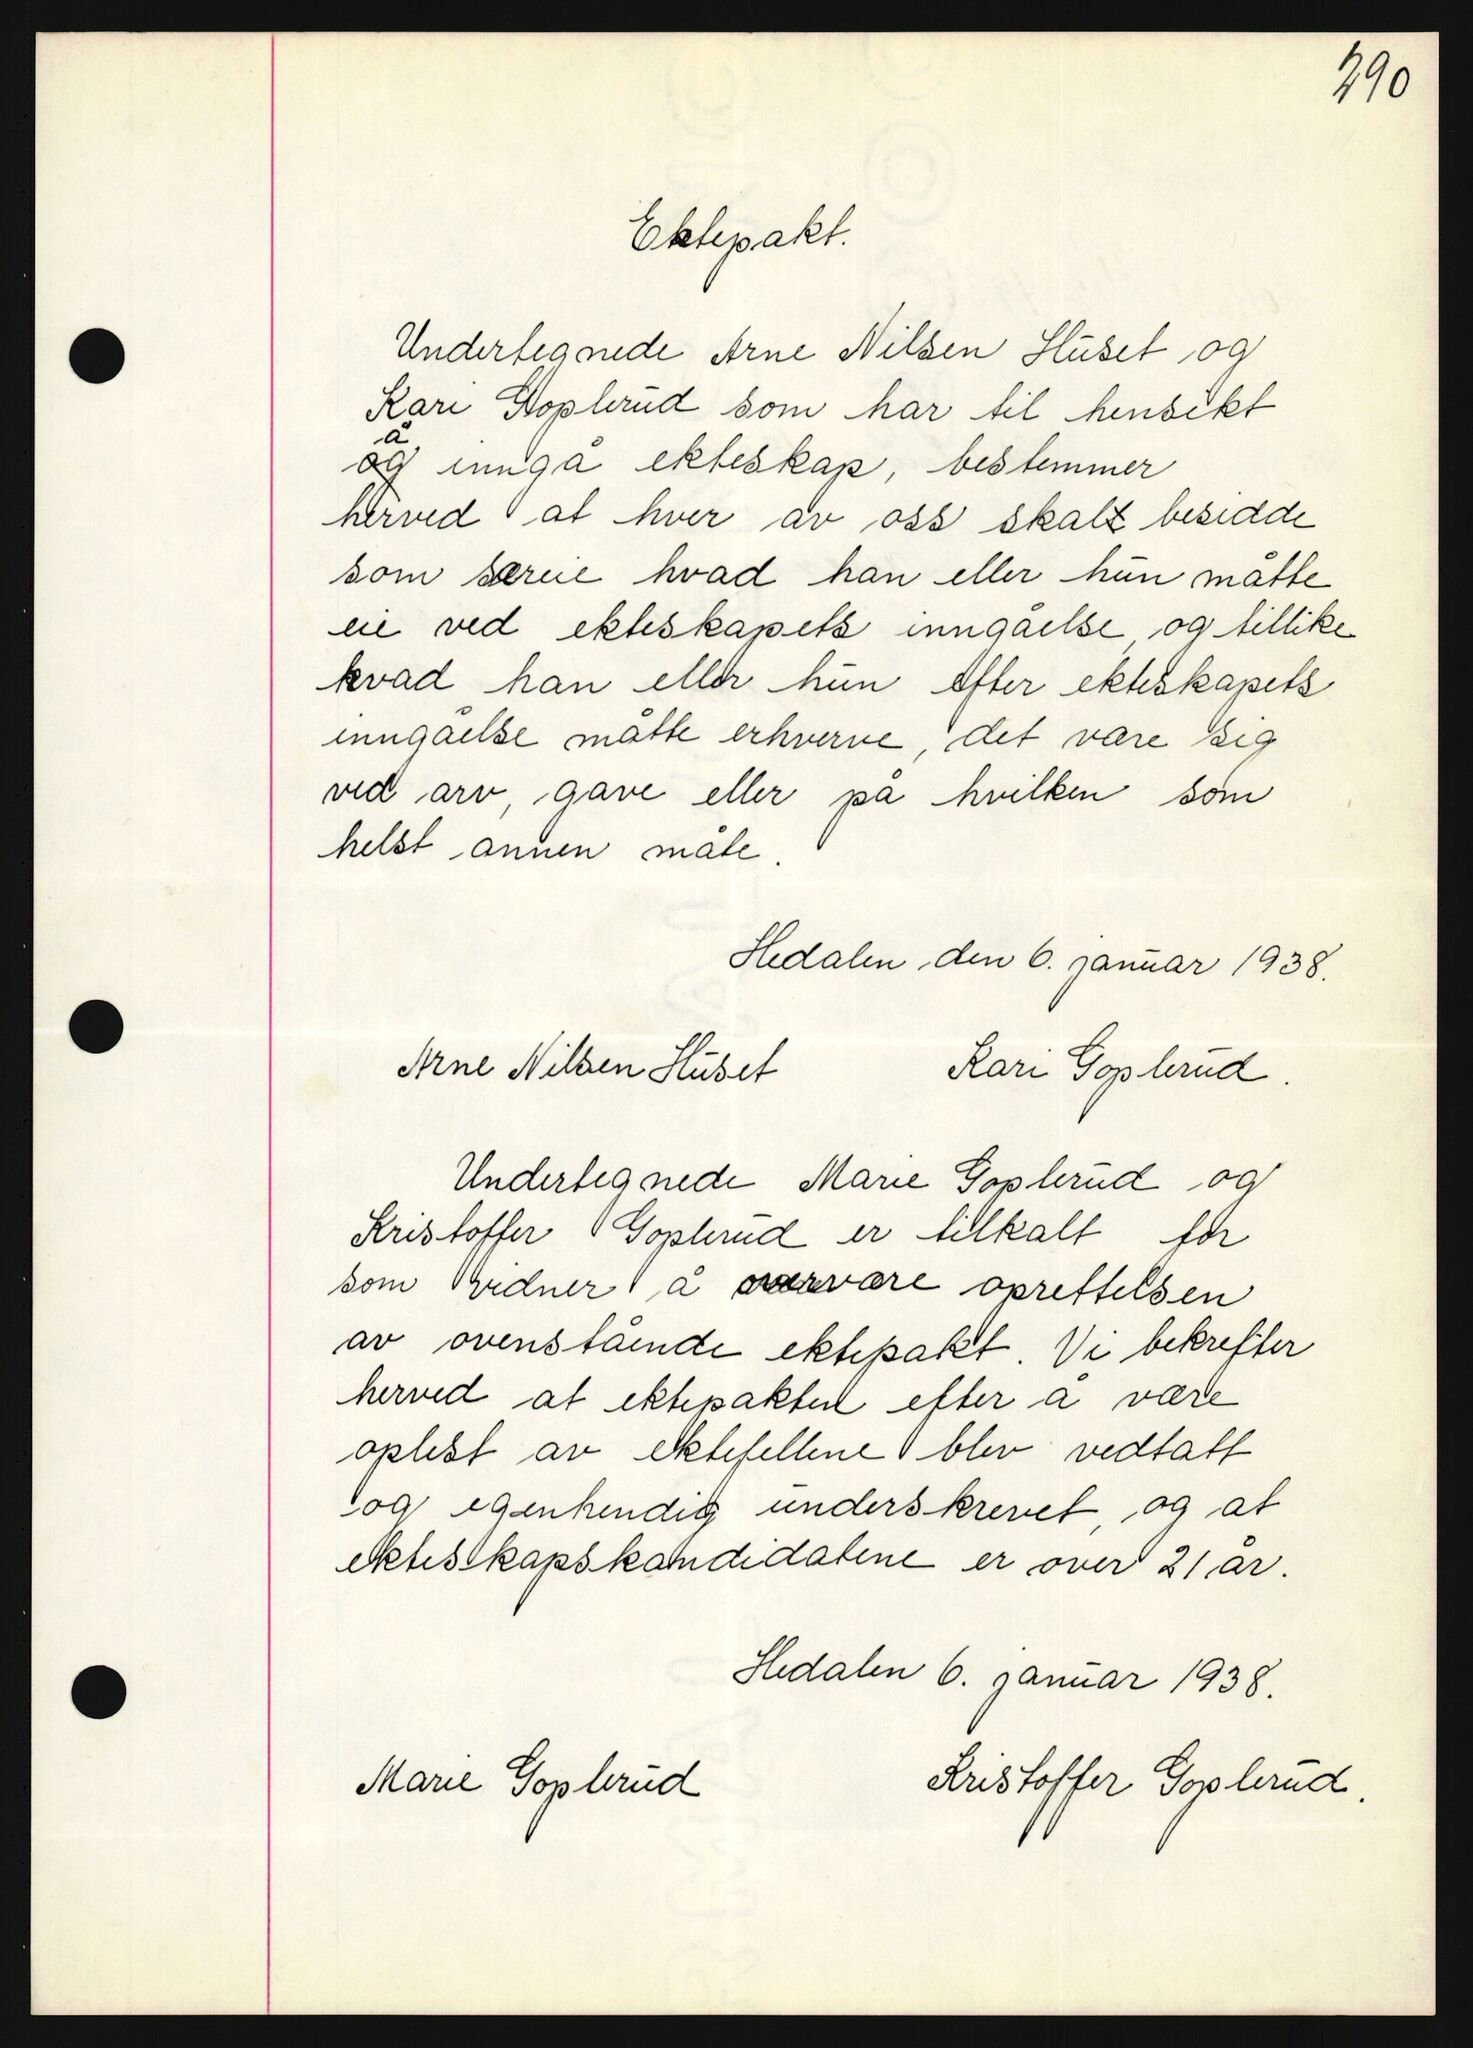 290
Ektepakt.
Undertegnede Arne Nilsen Huset og
Kari Goplerud som har til hensikt
å
og inngå ekteskap, bestemmer
herved at hver av oss skal besidde
som særeie hvad han eller hun måtte
eie ved ekteskapets inngåelse, og tillike
hvad han eller hun efter ekteskapets
inngåelse måtte erhverve, det være sig
ved arv, gave eller på hvilken som
helst annen måte.
Hedalen den 6. januar 1938.
Arne Nilsen Huset Kari Goplerud.
Undertegnede Marie Goplerud og
Kristoffer Goplerud er tilkalt for
som vidner å overvære oprettelsen
av ovenstående ektepakt. Vi bekrefter
herved at ektepakten efter å være
oplest av ektefellene blev vedtatt
og egenhendig underskrevet, og at
ekteskapskandidatene er over 21 år.
Hedalen 6. januar 1938.
Marie Goplerud Kristoffer Goplerud.